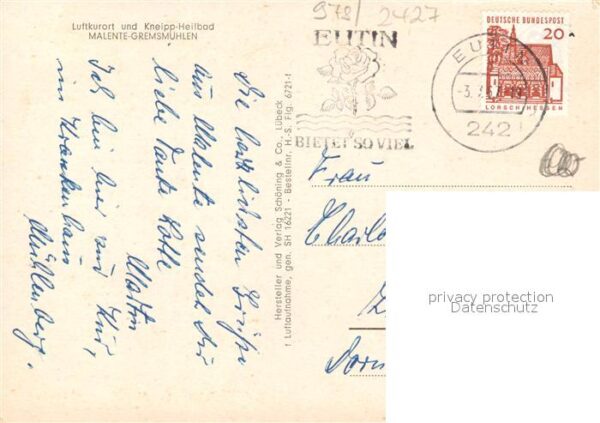 Luftkurort und Kneipp-Heilbad
MALENTE-GREMSMÜHLEN
Die herzlichsten Grüße
aus Malente sendet Dir
liebe Tante Lotte
Martin
Ich bin hier zur Kur,
im Krankenhaus
Mühlenberg.
Hersteller und Verlag Schöning & Co., Lübeck
† Luftaufnahme, gen. SH 16221 - Bestellnr. H.-S. Flg. 6721-f
978/ 2427
EUTIN
BIETET SO VIEL
EUTIN
-3.
242
DEUTSCHE BUNDESPOST
20
LORSCH/HESSEN
Frau
privacy protection
Datenschutz